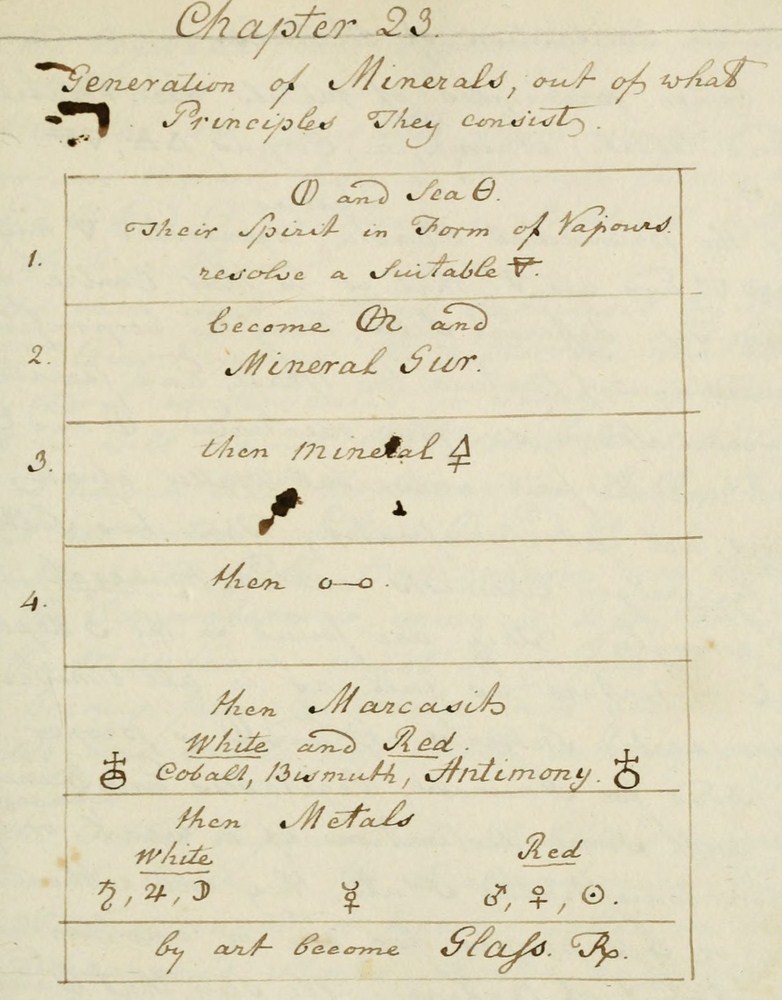 Chapter 23.
Generation of Minerals, out of what
Principles They consist.
🜕 and Sea 🜔.
Their Spirit in Form of Vapours
1. resolve a Suitable 🜃.
become and
2. Mineral Gur.
3. then mineral 🜍
then o—o.
4.
then Marcasits
White and Red.
Cobalt, Bismuth, Antimony. ♁
then Metals
White Red
♄, ♃, ☽ ☿ ♂, ♀, ☉.
by art become Glass.